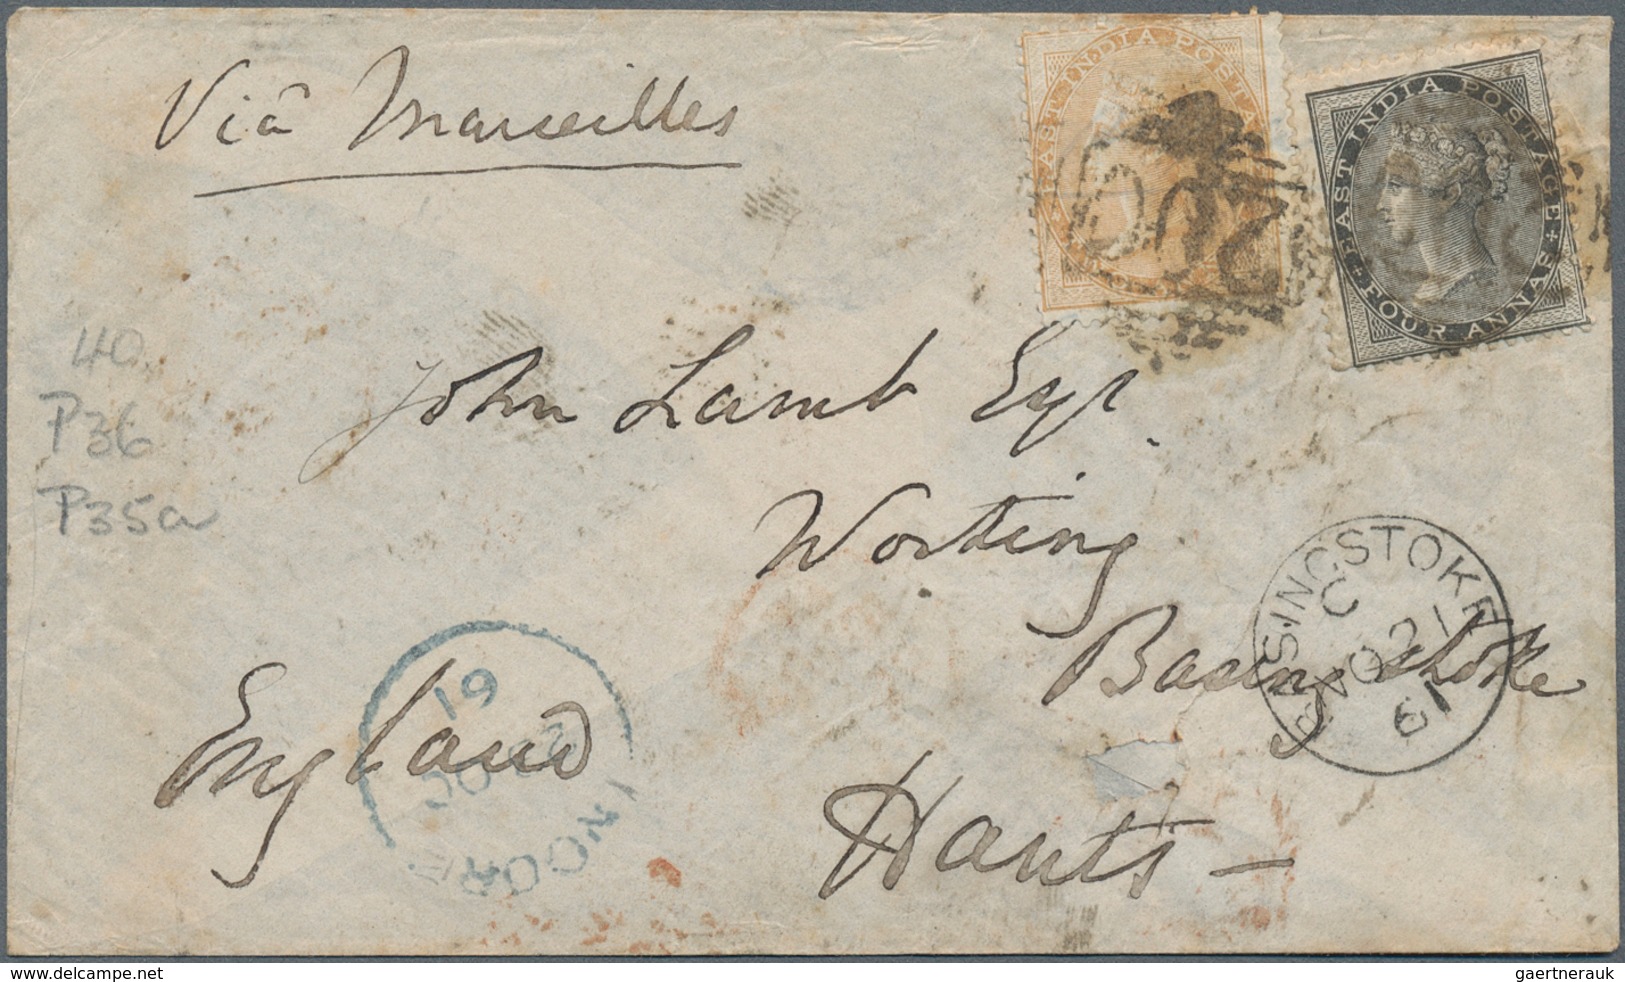 Viâ Marseilles
EAST INDIA POSTA
EAST INDIA POSTAGE
FOUR ANNAS
40
P36
P35a
John Lamb Esqr
Worting
Basingstoke
Hants
England
BASINGSTOKE
C
NO 21
61
61
INDORE
delcampe.net
gaertnerauk